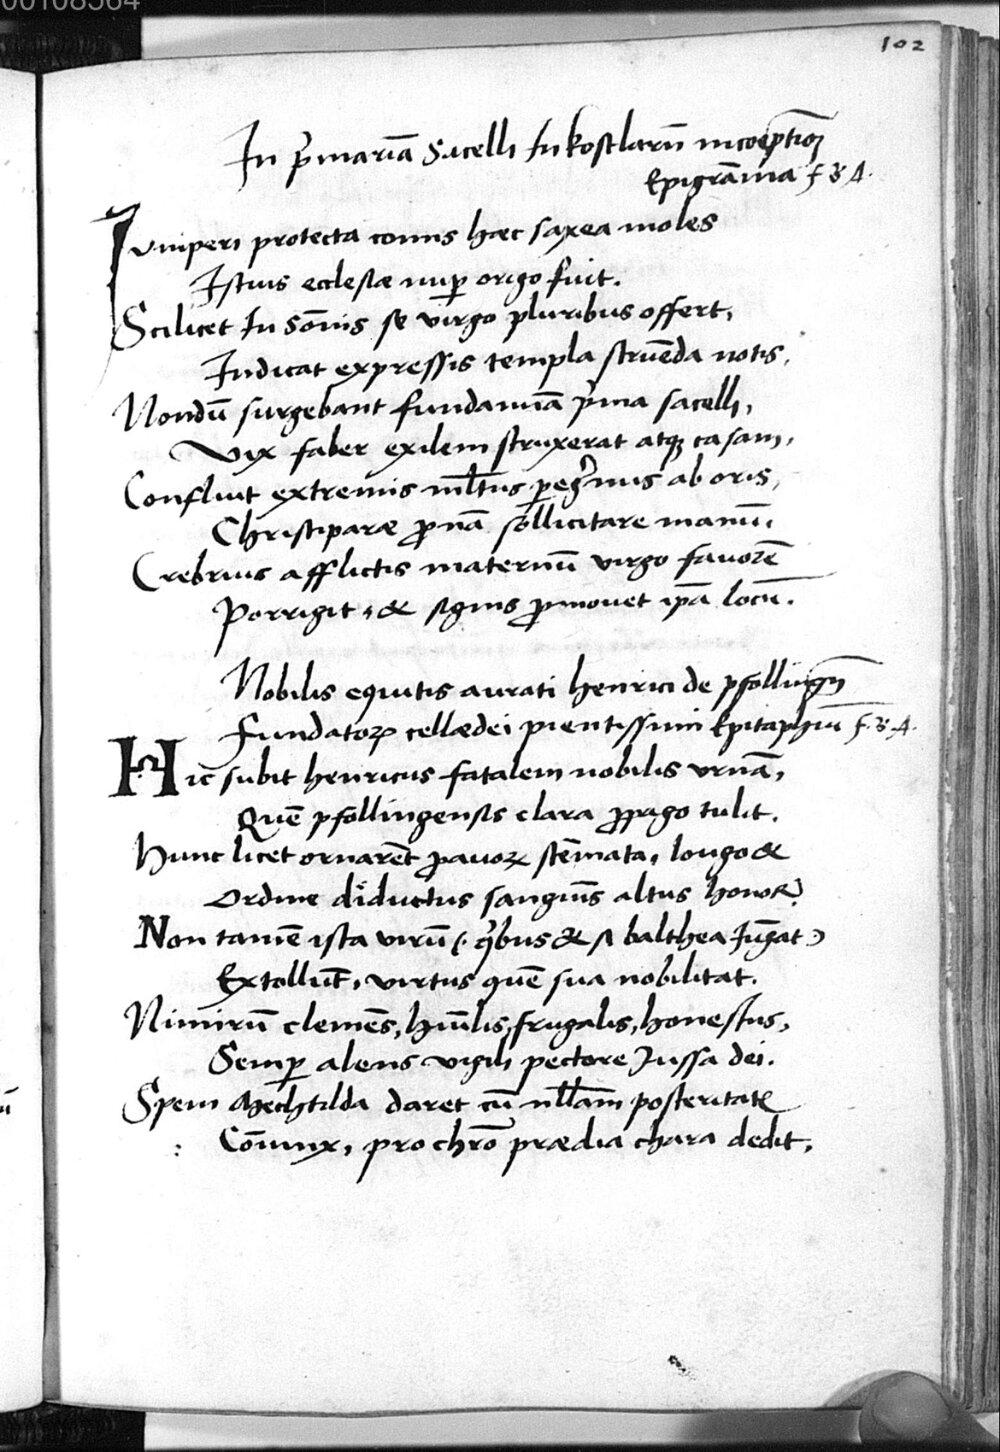 00108564
102
In p̄mariā Sacelli In kostlarn̄ incoeptioꝫ
Epigrāma f ꝛ A.
Iuniperi protecta comis hæc saxea moles
Istius ecclesiæ nuꝑ origo fuit.
Scilicet In sōnis se virgo pluribus offert,
Indicat expressis templa struēda notis,
Nondū surgebant fundamīa p̄ma sacelli,
Vix faber exilem struxerat atqꝫ casam,
Confluit extremis ml̄tus ꝑegrinus ab oris,
Christiparæ ꝓnā sollicitare manū,
Crebrius afflictis maternū virgo favorē
Porrigit, & signis ꝓmovet ipā locū.
Nobilis equitis aurati henrici de pfollingn̄
Fundatorꝫ cellædei pientissimi Epitaphiū f. ꝛ. A.
Hic subit henricus fatalem nobilis urnā,
Quē pfollingensis clara ꝓpago tulit.
Hunc licet ornarēt ꝓavorꝫ stēmata, longo &
Ordine diductus sanguīs altus honor,
Non tamē ista virū (qͥbus & si balthea Iūgat)
Extollūt, virtus quē sua nobilitat.
Nimirū clemēs, hūilis, frugalis, honestus,
Semꝑ alens vigili pectore Iussa dei.
Spem Mechtilda daret cū nl̄lam posteritatꝫ
Cōiunx, pro chrō prædia chara dedit.